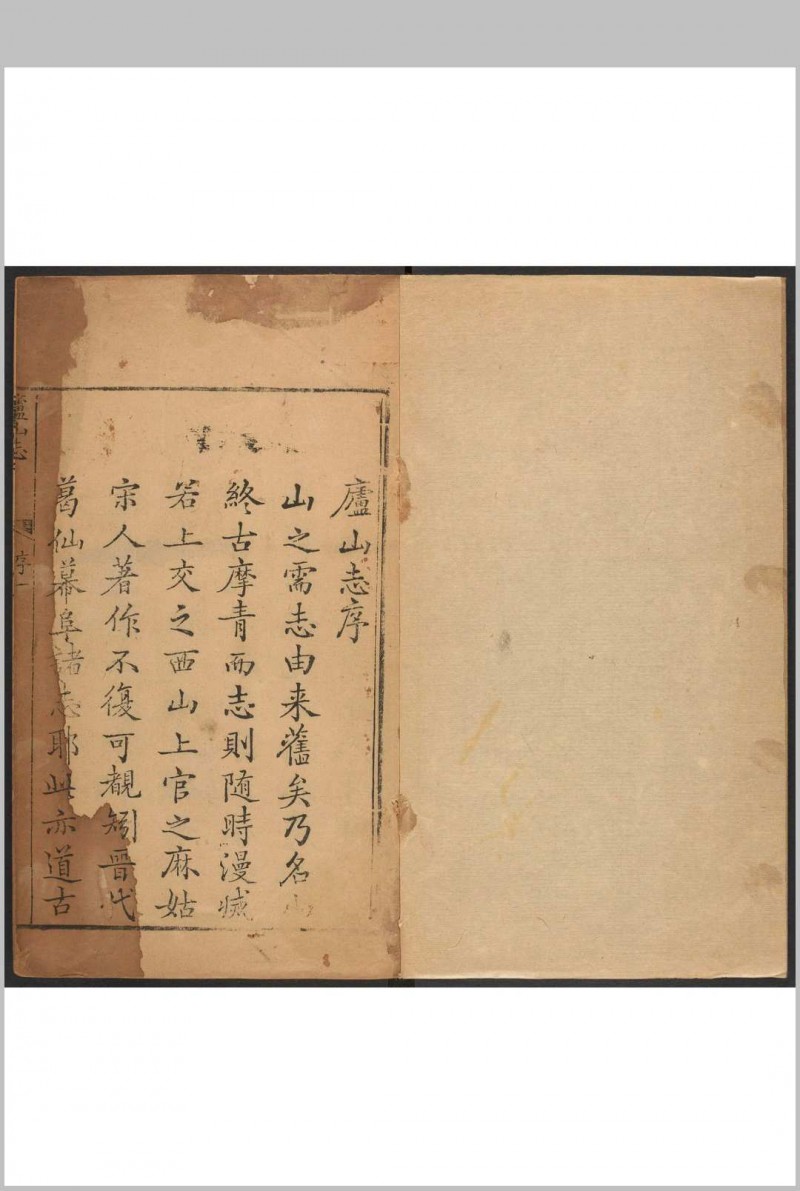 廬山志序
山之需志由来舊矣乃名山
終古摩青而志則随時漫滅
若上交之西山上官之麻姑
宋人著作不復可覩矧晋代
葛仙幕阜諸志耶此亦道古
廬山志
序一